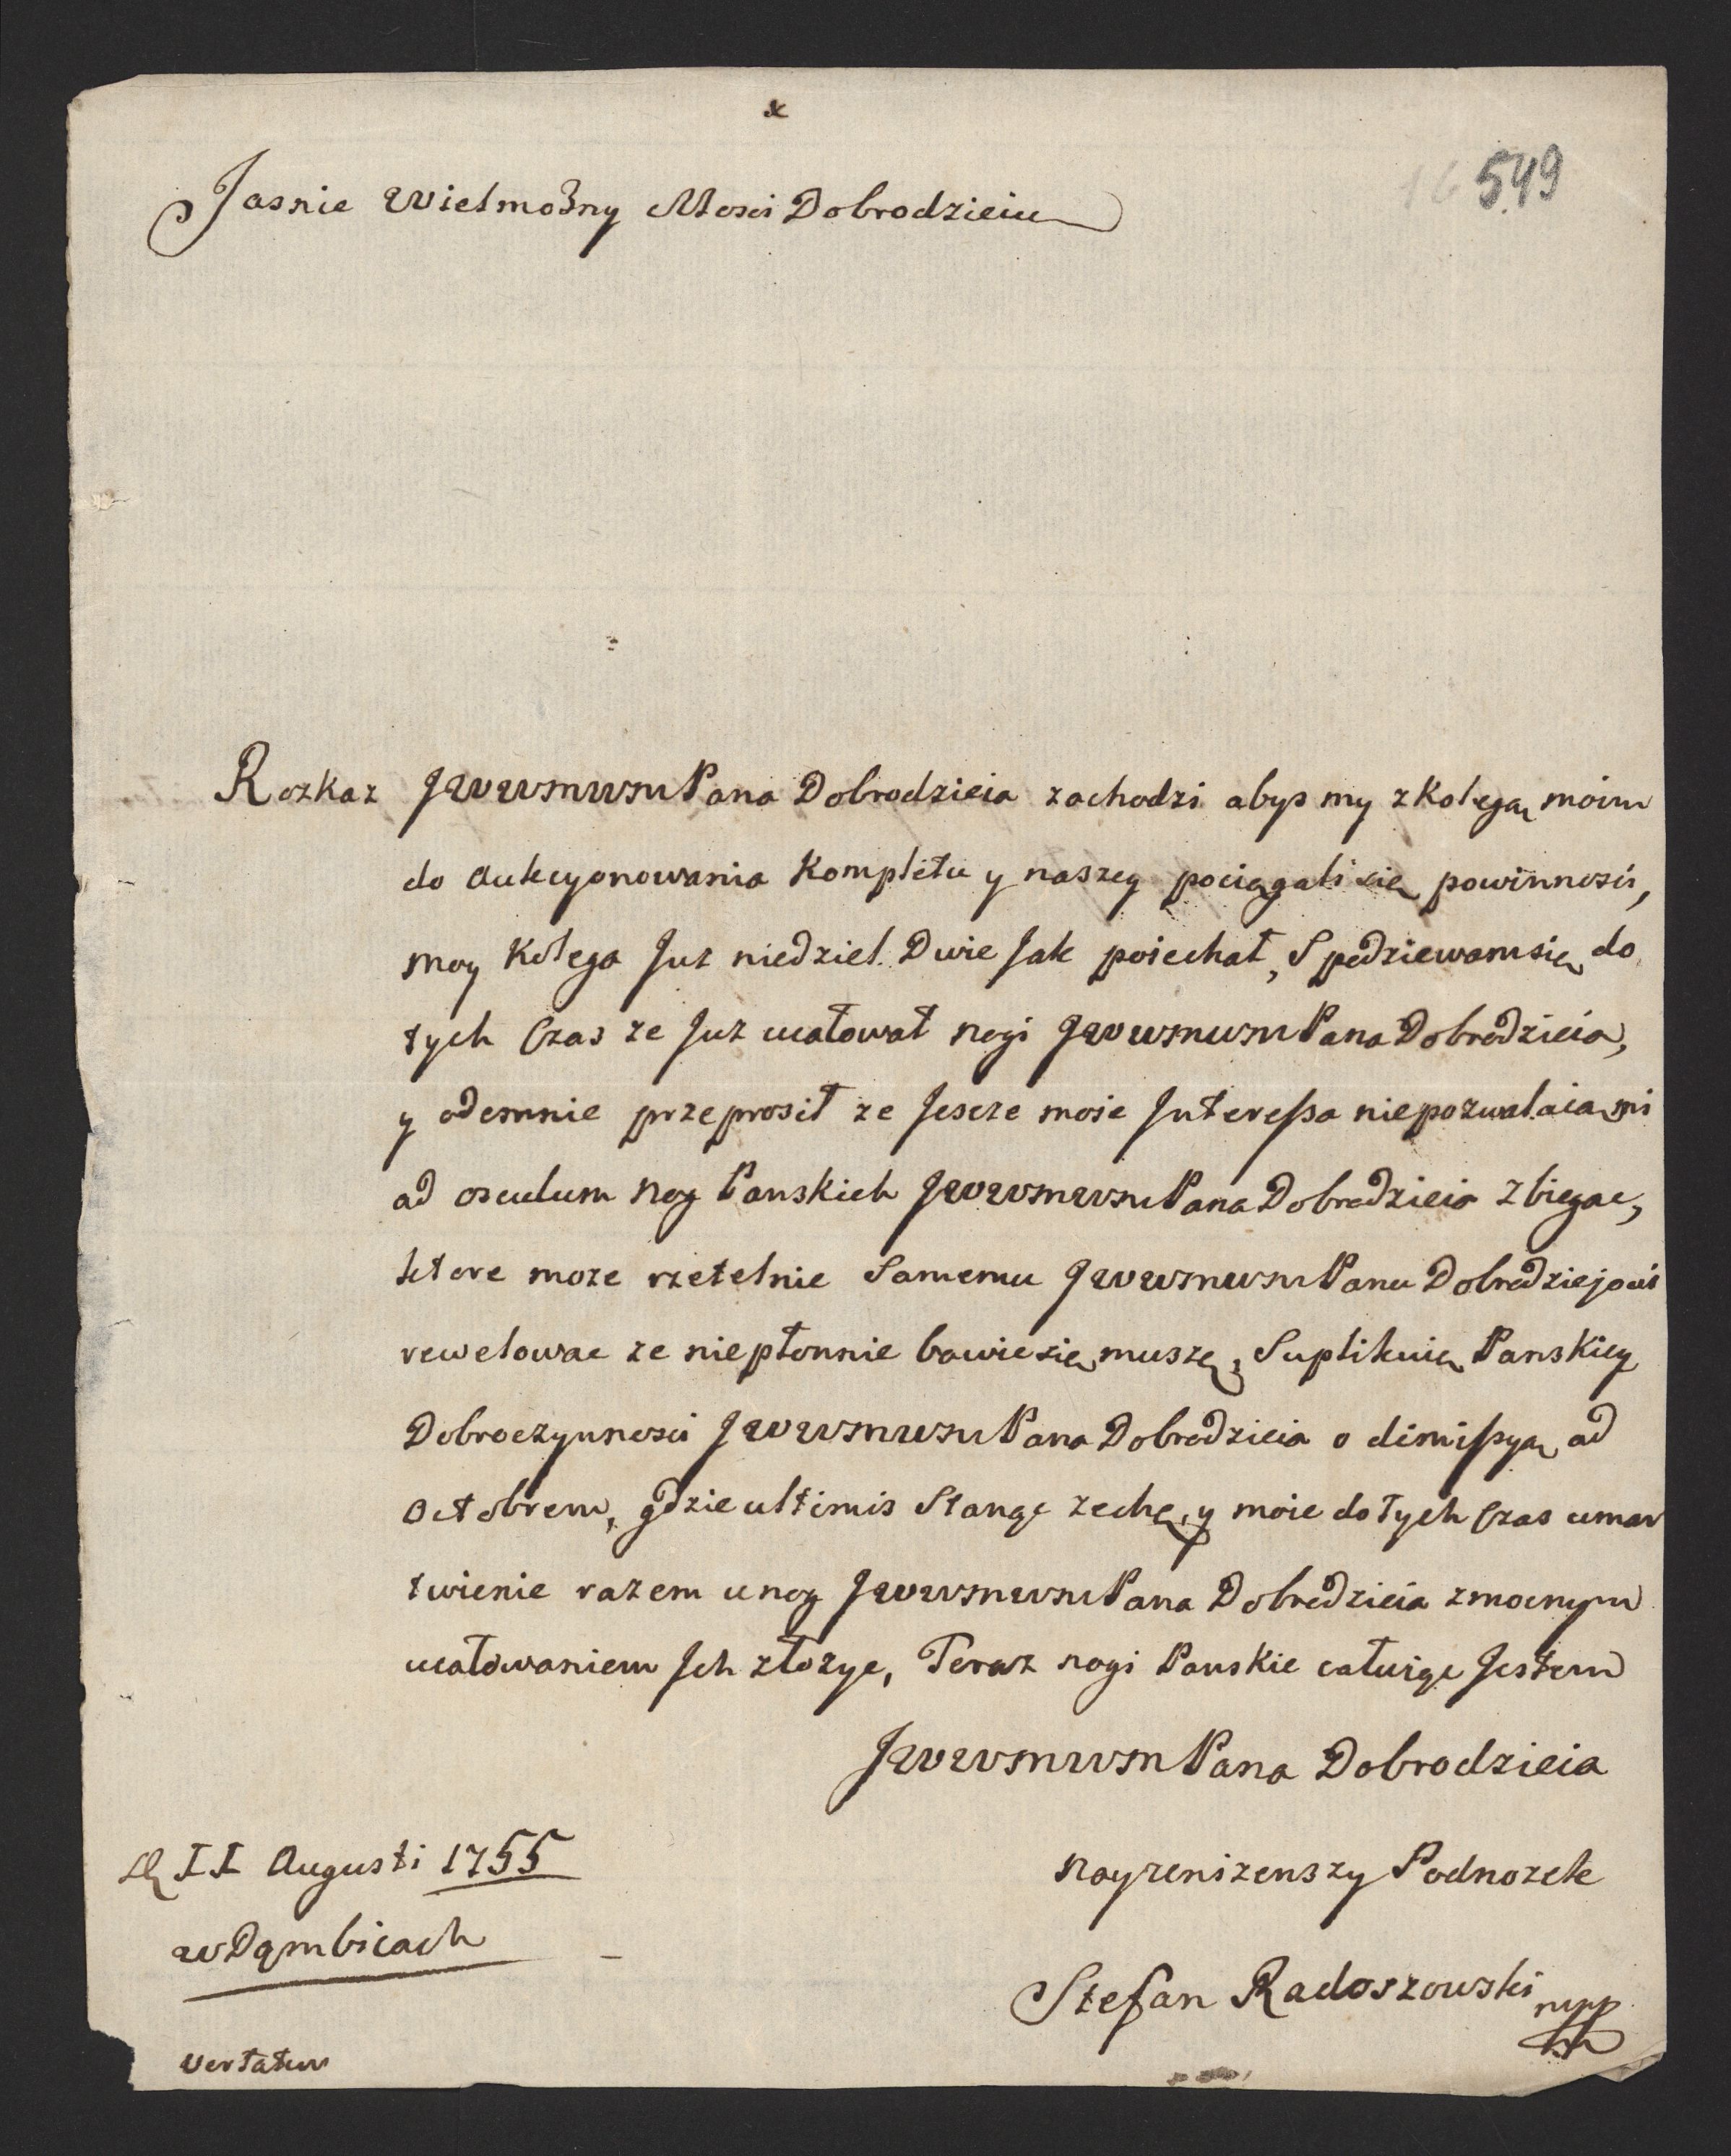 549
Jasnie Wielmożny Mosci Dobrodzieiu
Rozkaz JWWMWMPana Dobrodzieia zachodzi abysmy z Kolegą moim
do aukcyonowania Kompletu y naszey pociągali się powinnosci,
moy Kolega Juz niedziel Dwie Jak poiechał, Spodziewam się do
tych Czas ze Juz ucałował nogi JWWMWMPana Dobrodzieia,
y odemnie przeprosił ze Jescze moie Interessa niepozwalaią mi
ad osculum nog Panskich JWWMWMPana Dobrodzieia zbiegac,
ktore moze rzetelnie Samemu JWWMWMPanu Dobrodziejowi
rewelowac ze niepłonnie bawic się muszę, Suplikuię Panskiey
Dobroczynnosci JWWMWMPana Dobrodzieia o dimissyą ad
Octobrem, gdzie ultimis Stanąc zechę, y moie do tych Czas umar
twienie razem u nog JWWMWMPana Dobrodzieia z mocnym
ucałowaniem Ich złozyc, Teraz nogi Panskie całuiąc Jestem
JWWMWMPana Dobrodzieia
D 11 Augusti 1755
w Dąmbicach
nayzenizenszy Podnozek
Stefan Radoszowski mpp
Vertatur